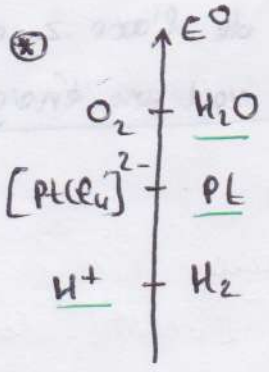 * E⁰
O₂ H₂O
[PtCl₄]²⁻ Pt
H⁺ H₂